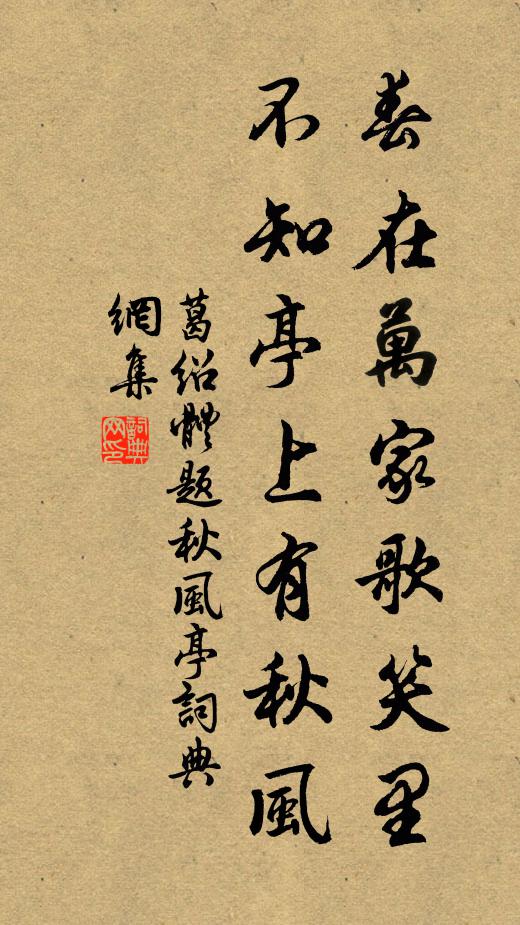 春在萬家歌笑里
不知亭上有秋風
葛紹體題秋風亭詞典
網集
詞典
网印